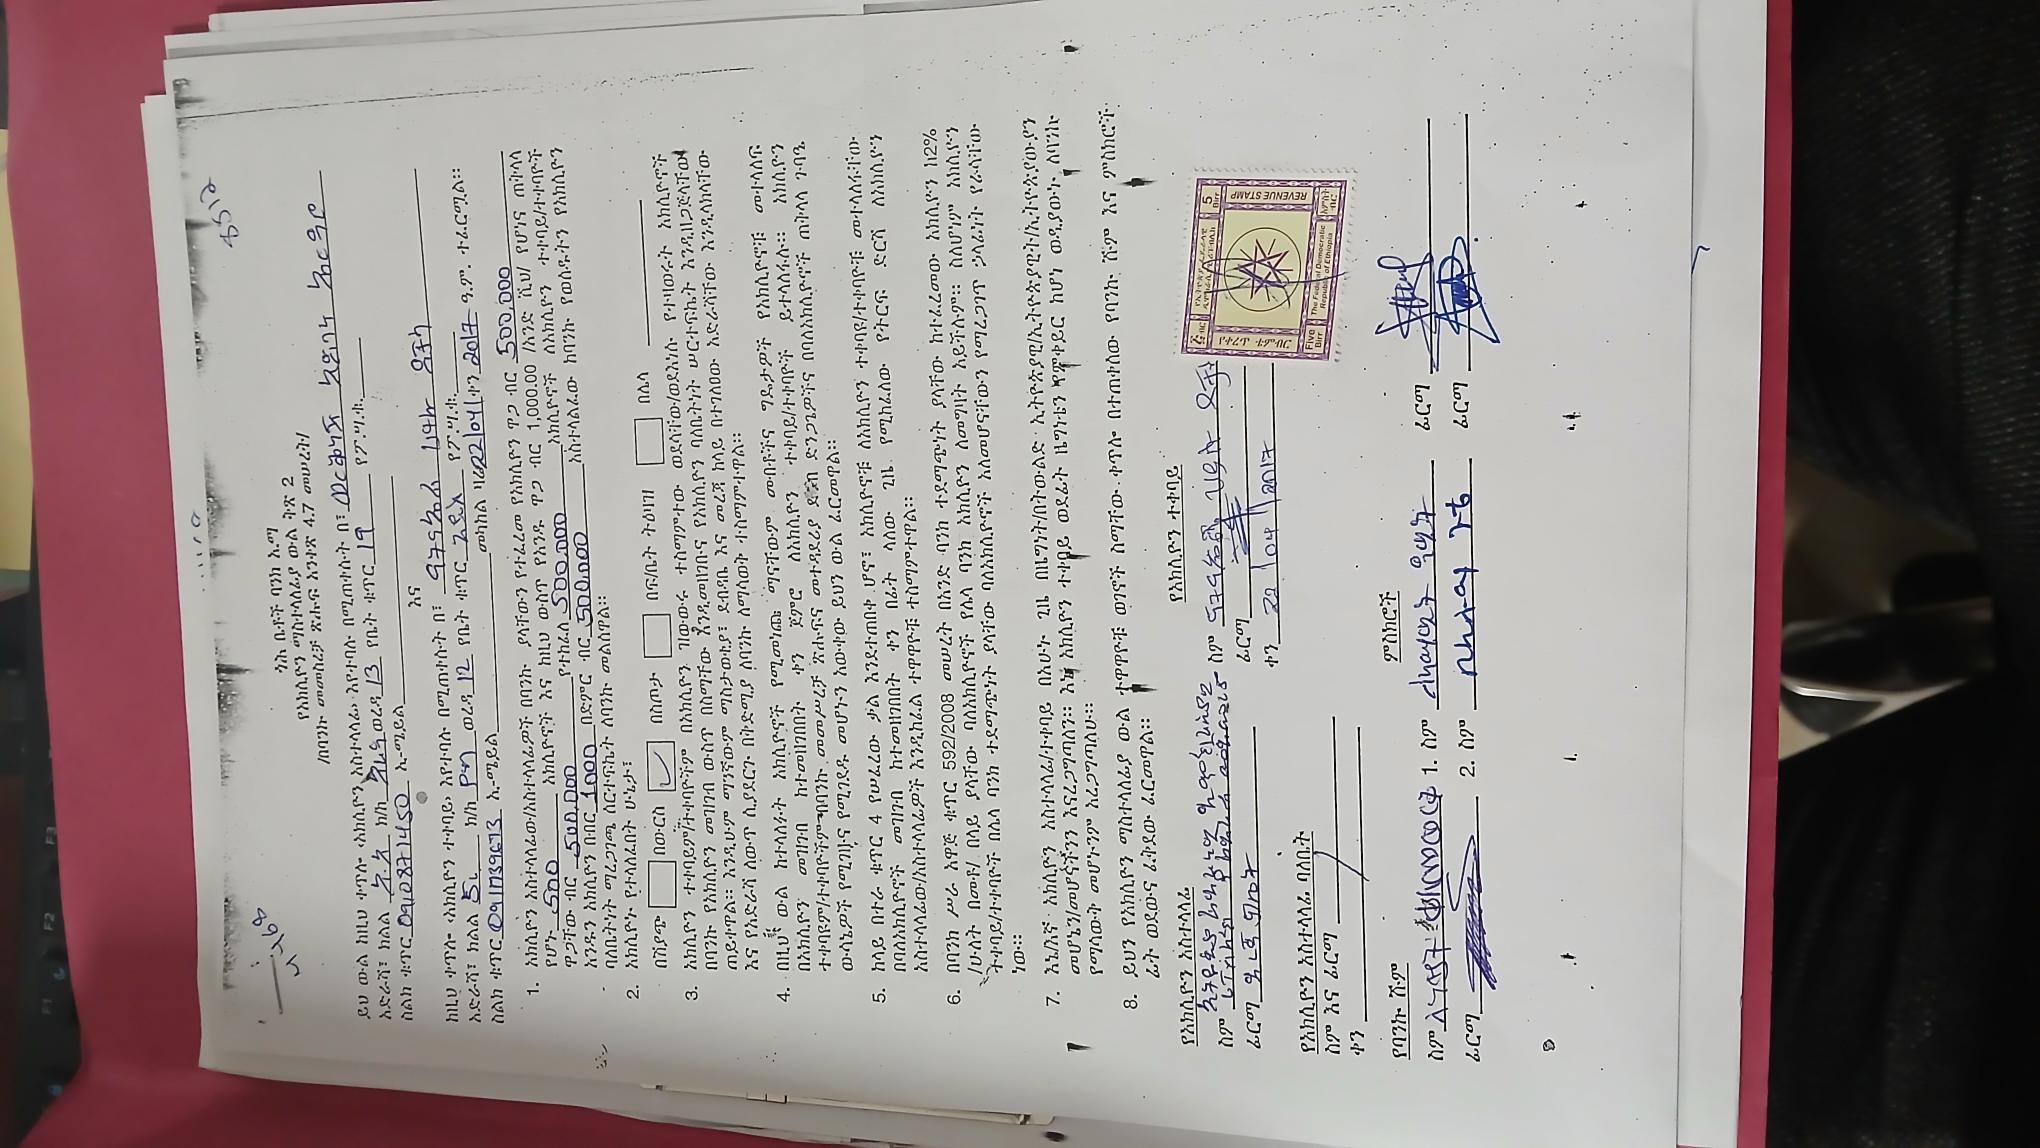 F1 F2 F3
4468
8512
ጎሕ ቤቶች ባንክ አ.ማ
የአክሲዮን ማስተላለፊያ ውል ቅጽ 2
/በባንኩ መመስረቻ ጽሑፍ አንቀጽ 4.7 መሠረት/
ይህ ውል ከዚህ ቀጥሎ ‹አክሲዮን አስተላላፊ› እየተባሉ በሚጠቀሱት በ፣
አድራሻ፣ ክልል አ.አ ክ/ከ አራዳ ወረዳ 13 የቤት ቁጥር 19 የፖ.ሣ.ቁ.
ስልክ ቁጥር 0910871450 ኢ-ሜይል
እና
ከዚህ ቀጥሎ ‹አክሲዮን ተቀባይ› እየተባሉ በሚጠቀሱት በ፣
አድራሻ፣ ክልል ክ/ከ ወረዳ 12 የቤት ቁጥር የፖ.ሣ.ቁ.
ስልክ ቁጥር 0911739673 ኢ-ሜይል መካከል ዛሬ 22/04/ ቀን 2017 ዓ.ም. ተፈርሟል፡፡
1. አክሲዮን አስተላላፊው/አስተላላፊዎች በባንኩ ያላቸውን የተፈረመ የአክሲዮን ዋጋ ብር 500,000
የሆኑ 500 አክሲዮኖች እና ከዚህ ውስጥ የአንዱ ዋጋ ብር 1,000.00 /አንድ ሺህ/ የሆነና ጠቅላላ
ዋጋቸው ብር 500,000 የተከፈለ 500,000 አክሲዮኖች ለአክሲዮን ተቀባይ/ተቀባዮች
አንዱን አክሲዮን በብር 1000 በድምር ብር 500,000 አስተላልፈው ከባንኩ የወሰዱትን የአክሲዮን
ባለቤትነት ማረጋገጫ ሰርተፍኬት ለባንኩ መልሰዋል፡፡
2. አክሲዮኑ የተላለፈበት ሁኔታ፣
በሽያጭ በውርስ በስጦታ በፍ/ቤት ትዕዛዝ በሌላ
3. አክሲዮን ተቀባይም/ተቀባዮችም በአክሲዮን ዝውውሩ ተስማምተው ወደሳቸው/ወደእነሱ የተዛወሩት አክሲዮኖች
በባንኩ የአክሲዮን መዝገብ ውስጥ በስማቸው እንዲመዘገቡና የአክሲዮን ባለቤትነት ሠርተፍኬት እንዲዘጋጅላቸው
ጠይቀዋል፡፡ እንዲሁም ማንኛውም ማስታወቂያ፣ ደብዳቤ እና መረጃ ከላይ በተገለፀው አድራሻቸው እንዲላክላቸው
እና የአድራሻ ለውጥ ሲያደርጉ በቅድሚያ ለባንኩ ለማሳወቅ ተስማምተዋል፡፡
4. በዚህ ውል ከተላለፉት አክሲዮኖች የሚመነጩ ማናቸውም መብቶችና ግዴታዎች የአክሲዮኖቹ መተላለፍ
በአክሲዮን መዝገብ ከተመዘገበበት ቀን ጀምሮ ለአክሲዮን ተቀባይ/ተቀባዮች ይተላለፋሉ፡፡ አክሲዮን
ተቀባዩም/ተቀባዮችም በባንኩ መመሥረቻ ጽሑፍና መተዳደሪያ ደንብ ድንጋጌዎችና በባለአክሲዮኖች ጠቅላላ ጉባዔ
ውሳኔዎች የሚገዙና የሚገደዱ መሆኑን አውቀው ይህን ውል ፈርመዋል፡፡
5. ከላይ በተራ ቁጥር 4 የሠፈረው ቃል እንደተጠበቀ ሆኖ፣ አክሲዮኖቹ ለአክሲዮን ተቀባዩ/ተቀባዮቹ መተላለፋቸው
በባለአክሲዮኖች መዝገብ ከተመዘገበበት ቀን በፊት ላለው ጊዜ የሚከፈለው የትርፍ ድርሻ ለአክሲዮን
አስተላላፊው/አስተላላፊዎች እንዲከፈል ተዋዋዮቹ ተስማምተዋል፡፡
6. በባንክ ሥራ አዋጅ ቁጥር 592/2008 መሠረት በአንድ ባንክ ተደማጭነት ያላቸው ከተፈረመው አክሲዮን ከ2%
/ሁለት በመቶ/ በላይ ያላቸው ባለአክሲዮኖች የሌላ ባንክ አክሲዮን ለመግዛት አይችሉም፡፡ ስለሆነም አክሲዮን
ተቀባይ/ተቀባዮች በሌላ ባንክ ተደማጭነት ያላቸው ባለአክሲዮኖች አለመሆናቸውን የማረጋገጥ ኃላፊነት የራሳቸው
ነው፡፡
7. እኔ/እኛ አክሲዮን አስተላላፊ/ተቀባይ በአሁኑ ጊዜ በዜግነት/በትውልድ ኢትዮጵያዊ/ኢትዮጵያዊት/ኢትዮጵያውያን
መሆኔን/መሆናችንን እናረጋግጣለን፡፡ እኔ አክሲዮን ተቀባይ ወደፊት ዜግነቴን የምቀይር ከሆነ ወዲያውኑ ለባንኩ
የማሳውቅ መሆኑንም አረጋግጣለሁ፡፡
8. ይህን የአክሲዮን ማስተላለፊያ ውል ተዋዋዮቹ ወገኖች ስማቸው ቀጥሎ በተጠቀሰው የባንኩ ሹም እና ምስክሮች
ፊት ወደውና ፈቅደው ፈርመዋል፡፡
የአክሲዮን አስተላላፊ የአክሲዮን ተቀባይ
ስም ስም
ፊርማ ፊርማ
ቀን 22/04/2017
የአክሲዮን አስተላላፊ ባለቤት
ስም እና ፊርማ
ቀን
5 Birr
REVENUE STAMP
Five Birr
The Federal Democratic Republic of Ethiopia
አምስት ብር
የባንኩ ሹም ምስክሮች
ስም 1. ስም ፊርማ
ፊርማ 2. ስም ፊርማ